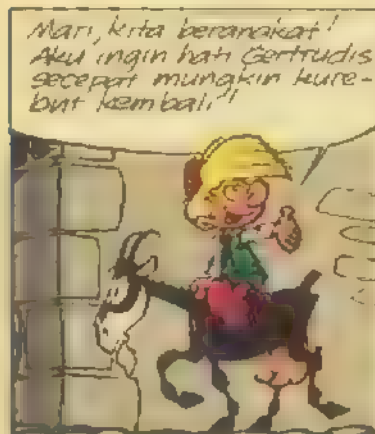 Mari, kita berangkat!
Aku ingin hati Gertrudis
secepat mungkin kure-
but kembali!!